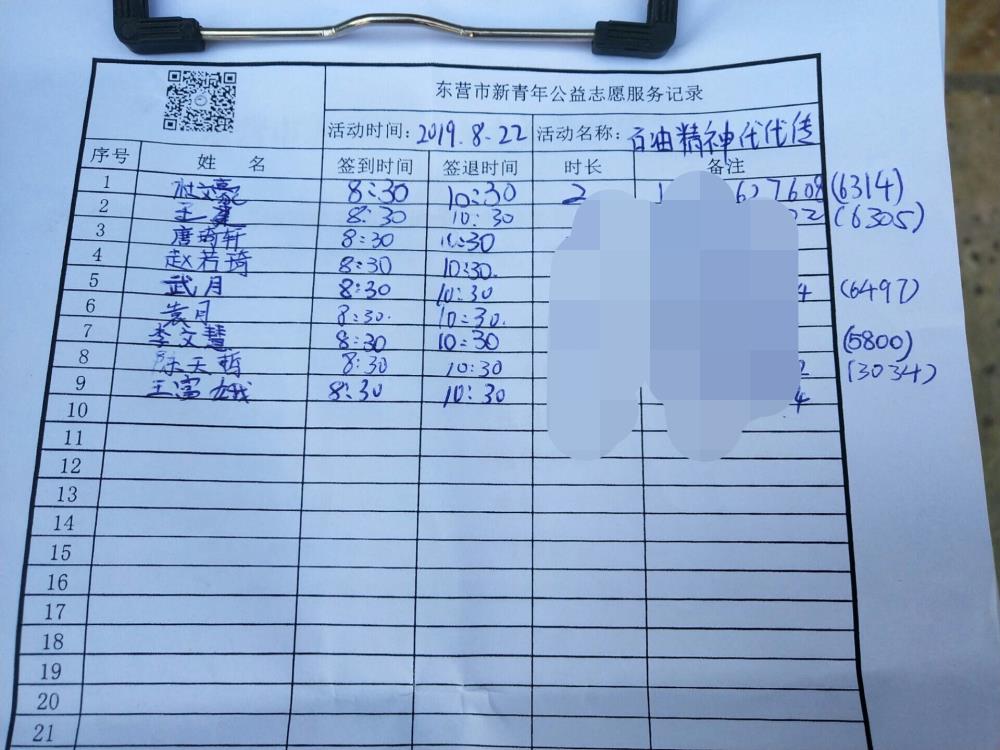 东营市新青年公益志愿服务记录
活动时间: 2019.8.22 活动名称: 石油精神代代传
序号 姓 名 签到时间 签退时间 时长 备注
1 杜文豪 8:30 10:30 2 627608 (6314)
2 王 8:30 10:30 22 (6305)
3 唐琦轩 8:30 10:30
4 赵若琦 8:30 10:30.
5 武月 8:30 10:30 4 (6497)
6 袁月 8:30. 10:30.
7 李文慧 8:30 10:30 (5800)
8 陈天哲 8:30 10:30 2 (3034)
9 王富娥 8:30 10:30 4
10
11
12
13
14
15
16
17
18
19
20
21